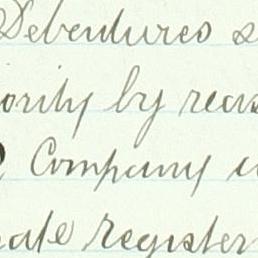 Debentures s
ority by reas
Company
ate register